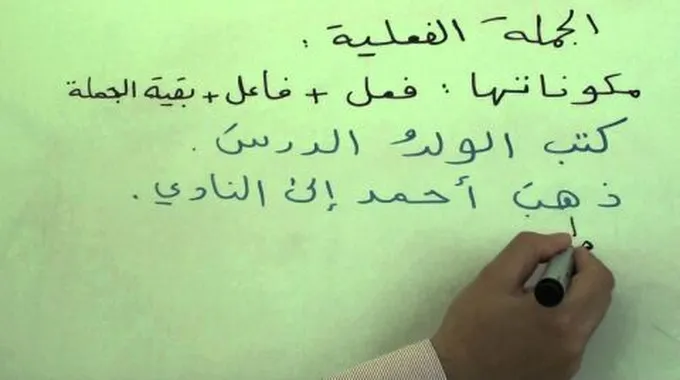 الجملة الفعلية :
مكوناتها : فعل + فاعل + بقية الجملة
كتب الولدُ الدرسَ .
ذهبَ أحمد إلىٰ النادي .